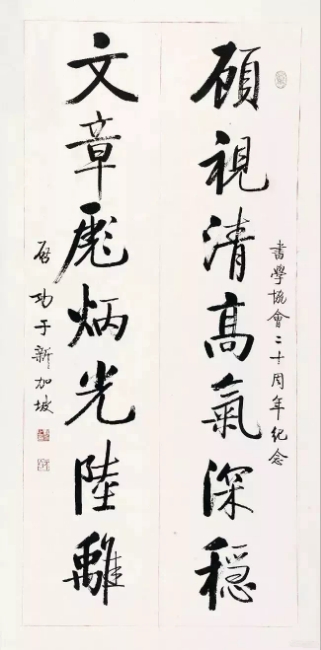 書學協會二十周年紀念
顧視清高氣深穩
文章彪炳光陸離
啓功于新加坡